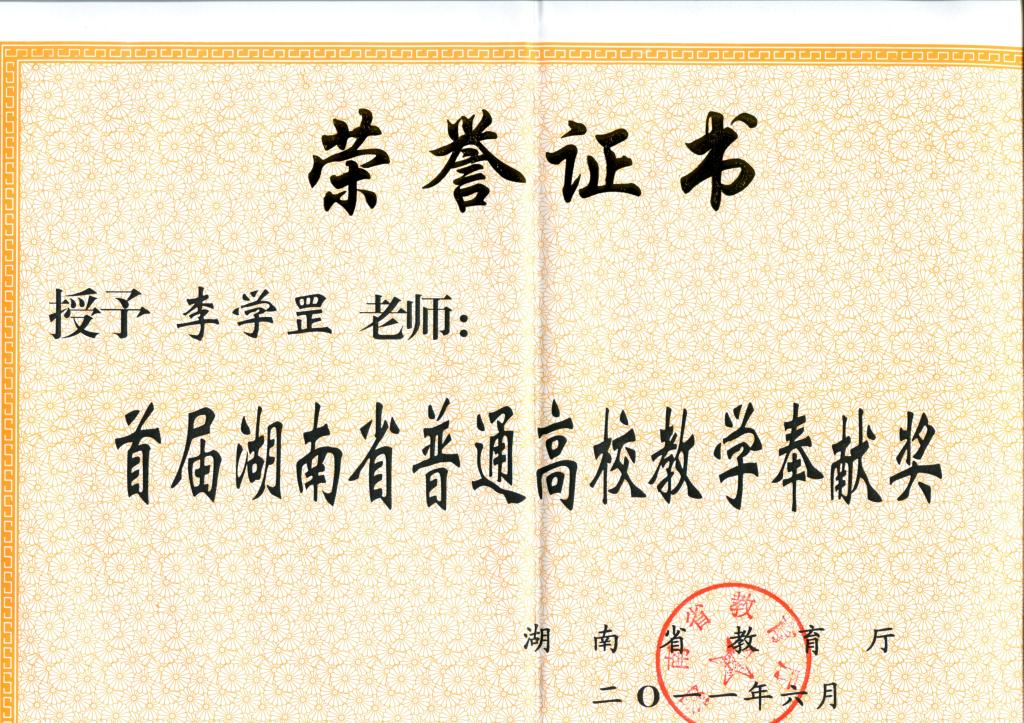 荣誉证书
授予 李学罡 老师：
首届湖南省普通高校教学奉献奖
湖南省教育厅
二〇一一年六月
湖南省教育厅